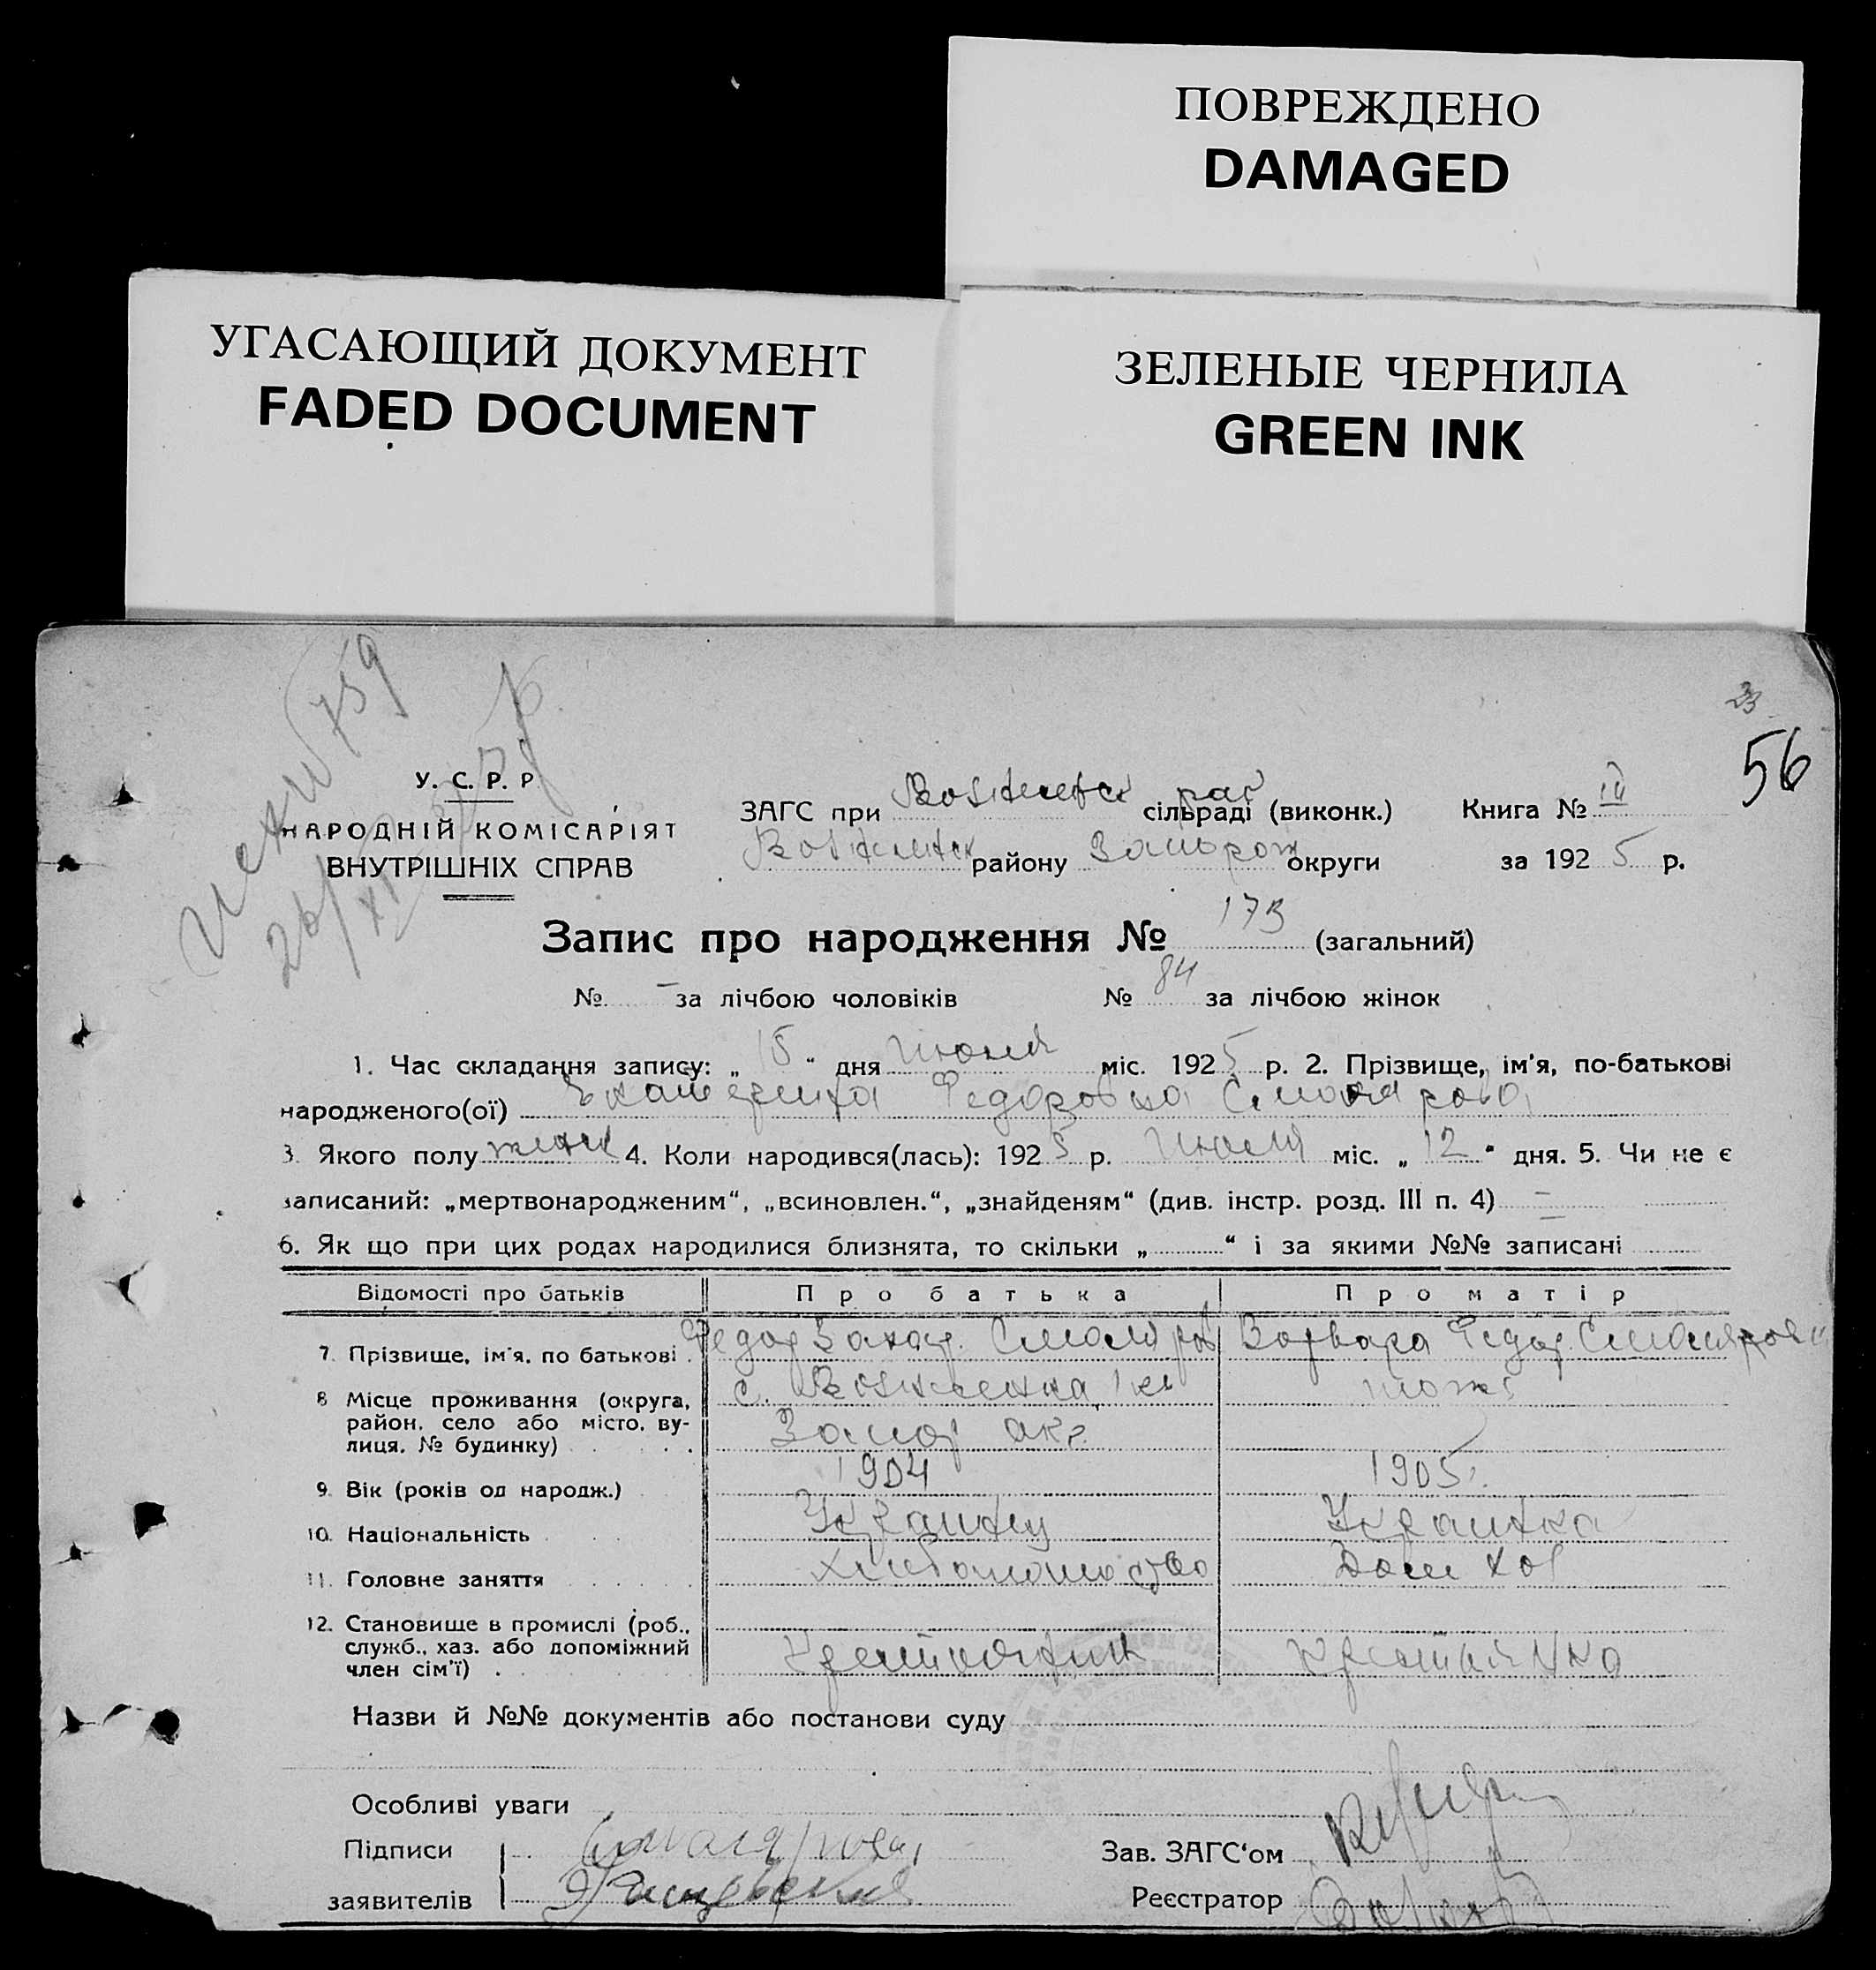 ПОВРЕЖДЕНО
DAMAGED
УГАСАЮЩИЙ ДОКУМЕНТ
FADED DOCUMENT
ЗЕЛЕНЫЕ ЧЕРНИЛА
GREEN INK
759
56
У. С. Р. Р
НАРОДНІЙ КОМІСАРІЯТ
ВНУТРІШНІХ СПРАВ
26/XI
ЗАГС при сільраді (виконк.) Книга № III
району Запорож округи за 1925 р.
Запис про народження № 173 (загальний)
№ – за лічбою чоловіків № 84 за лічбою жінок
1. Час складання запису: „15“ дня Июня міс. 1925 р. 2. Прізвище, ім'я, по-батькові
народженого(ої) Екатерина Федоровна Смолярова
3. Якого полу женск 4. Коли народився(лась): 1925 р. міс. „12“ дня. 5. Чи не є
записаний: „мертвонародженим“, „всиновлен.“, „знайденям“ (див. інстр. розд. III п. 4) –
6. Як що при цих родах народилися близнята, то скільки „ “ і за якими №№ записані
Відомості про батьків Про батька Про матір
7. Прізвище, ім'я, по батькові Федор Захар. Смоляров Варвара Федор. Смолярова
8 Місце проживання (округа, с.
район, село або місто, ву-
лиця, № будинку) Запор окр. тоже
9. Вік (років од народж.) 1904 1905
10. Національність Украинец Украинка
11. Головне заняття хлебопашество Дом хоз
12. Становище в промислі (роб.,
служб., хаз. або допоміжний
член сім'ї) Крестьянин крестьянка
Назви й №№ документів або постанови суду
Особливі уваги
Підписи Смолярова
заявителів
Зав. ЗАГС'ом
Реєстратор